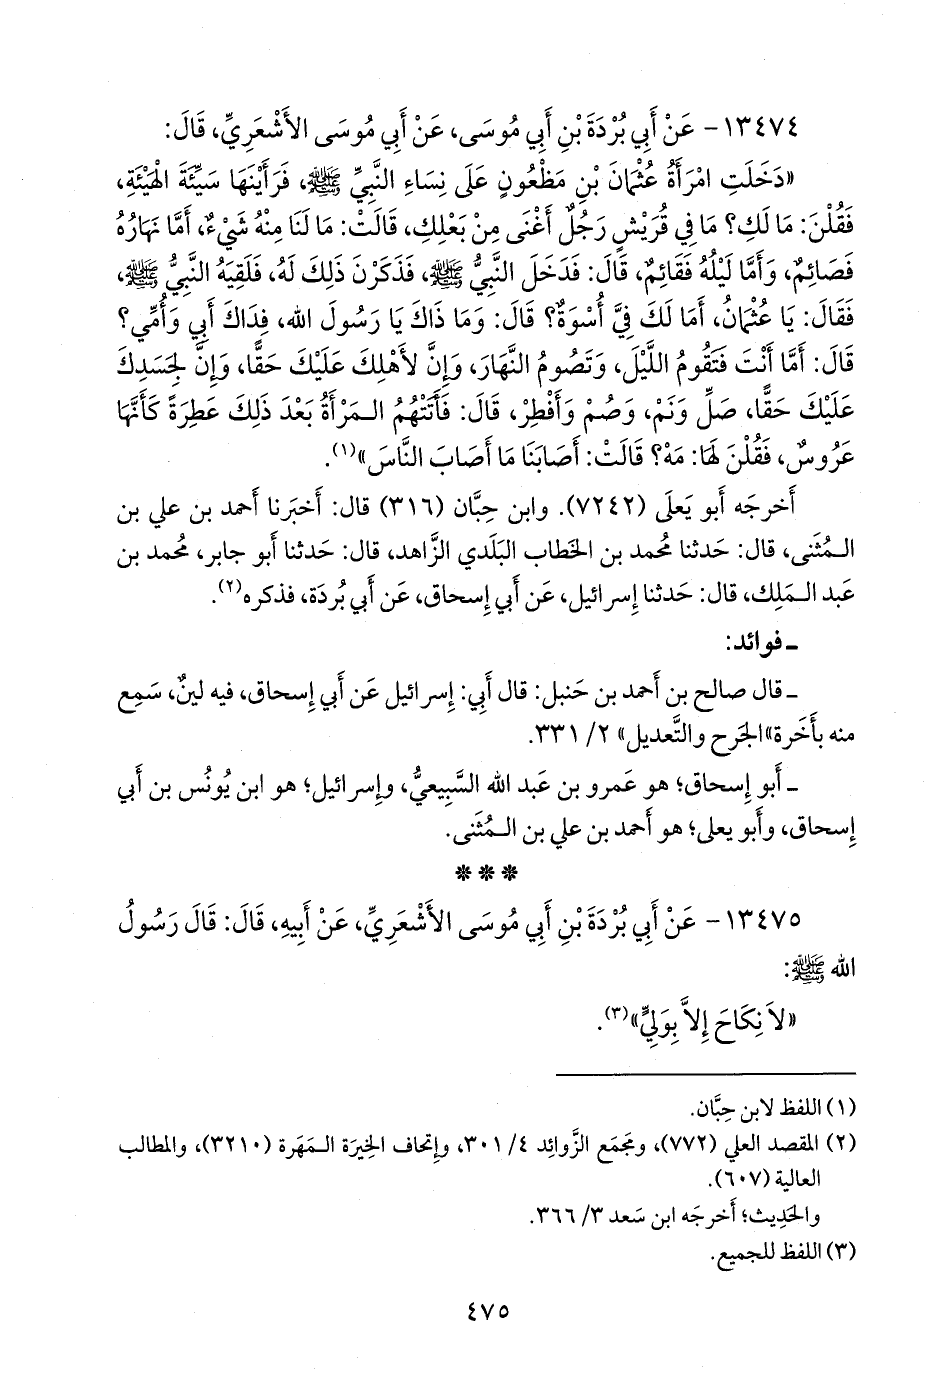 ١٣٤٧٤ - عَنْ أَبِي بُرْدَةَ بْنِ أَبِي مُوسَى، عَنْ أَبِي مُوسَى الأَشْعَرِيِّ، قَالَ:
«دَخَلَتِ امْرَأَةُ عُثْمَانَ بْنِ مَظْعُونٍ عَلَى نِسَاءِ النَّبِيِّ ﷺ، فَرَأَيْنَهَا سَيِّئَةَ الْهَيْئَةِ،
فَقُلْنَ: مَا لَكِ؟ مَا فِي قُرَيْشٍ رَجُلٌ أَغْنَى مِنْ بَعْلِكِ، قَالَتْ: مَا لَنَا مِنْهُ شَيْءٌ، أَمَّا نَهَارُهُ
فَصَائِمٌ، وَأَمَّا لَيْلُهُ فَقَائِمٌ، قَالَ: فَدَخَلَ النَّبِيُّ ﷺ، فَذَكَرْنَ ذَلِكَ لَهُ، فَلَقِيَهُ النَّبِيُّ ﷺ،
فَقَالَ: يَا عُثْمَانُ، أَمَا لَكَ فِيَّ أُسْوَةٌ؟ قَالَ: وَمَا ذَاكَ يَا رَسُولَ الله، فِدَاكَ أَبِي وَأُمِّي؟
قَالَ: أَمَّا أَنْتَ فَتَقُومُ اللَّيْلَ، وَتَصُومُ النَّهَارَ، وَإِنَّ لأَهْلِكَ عَلَيْكَ حَقًّا، وَإِنَّ لِجَسَدِكَ
عَلَيْكَ حَقًّا، صَلِّ وَنَمْ، وَصُمْ وَأَفْطِرْ، قَالَ: فَأَتَتْهُمُ الـمَرْأَةُ بَعْدَ ذَلِكَ عَطِرَةً كَأَنَّهَا
عَرُوسٌ، فَقُلْنَ لَهَا: مَهْ؟ قَالَتْ: أَصَابَنَا مَا أَصَابَ النَّاسَ»(١).
أَخرجَه أَبو يَعلَى (٧٢٤٢). وابن حِبَّان (٣١٦) قال: أَخبَرنا أَحمد بن علي بن
الـمُثَنى، قال: حَدثنا مُحمد بن الخَطاب البَلَدي الزَّاهد، قال: حَدثنا أَبو جابر، مُحمد بن
عَبد الـمَلِك، قال: حَدثنا إِسرائيل، عَن أَبي إِسحاق، عَن أَبي بُردَة، فذكره(٢).
ـ فوائد:
ـ قال صالح بن أَحمد بن حَنبل: قال أَبِي: إِسرائيل عَن أَبي إِسحاق، فيه لينٌ، سَمِع
منه بأَخَرة»الجَرح والتَّعديل» ٢/ ٣٣١.
ـ أَبو إِسحاق؛ هو عَمرو بن عَبد الله السَّبِيعيُّ، وإِسرائيل؛ هو ابن يُونُس بن أَبي
إِسحاق، وأَبو يعلى؛ هو أَحمد بن علي بن الـمُثَنى.
***
١٣٤٧٥ - عَنْ أَبِي بُرْدَةَ بْنِ أَبِي مُوسَى الأَشْعَرِيِّ، عَنْ أَبِيهِ، قَالَ: قَالَ رَسُولُ
الله ﷺ:
«لاَ نِكَاحَ إِلاَّ بِوَلِيٍّ»(٣).
(١) اللفظ لابن حِبَّان.
(٢) المقصد العلي (٧٧٢)، ومَجمَع الزَّوائِد ٤/ ٣٠١، وإتحاف الخِيرَة الـمَهَرة (٣٢١٠)، والمطالب
العالية (٦٠٧).
والحَدِيث؛ أَخرجَه ابن سَعد ٣/ ٣٦٦.
(٣) اللفظ للجميع.
٤٧٥